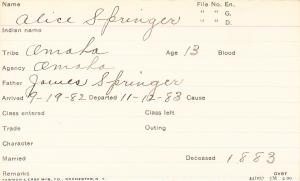 Name File No. En.
Alice Springer " " G.
Indian name " " D.
Tribe Omaha Age 13 Blood
Agency Omaha
Father James Springer
Arrived 9-19-82 Departed 11-12-83 Cause
Class entered Class left
Trade Outing
Character
Married Deceased 1883
Remarks OVER